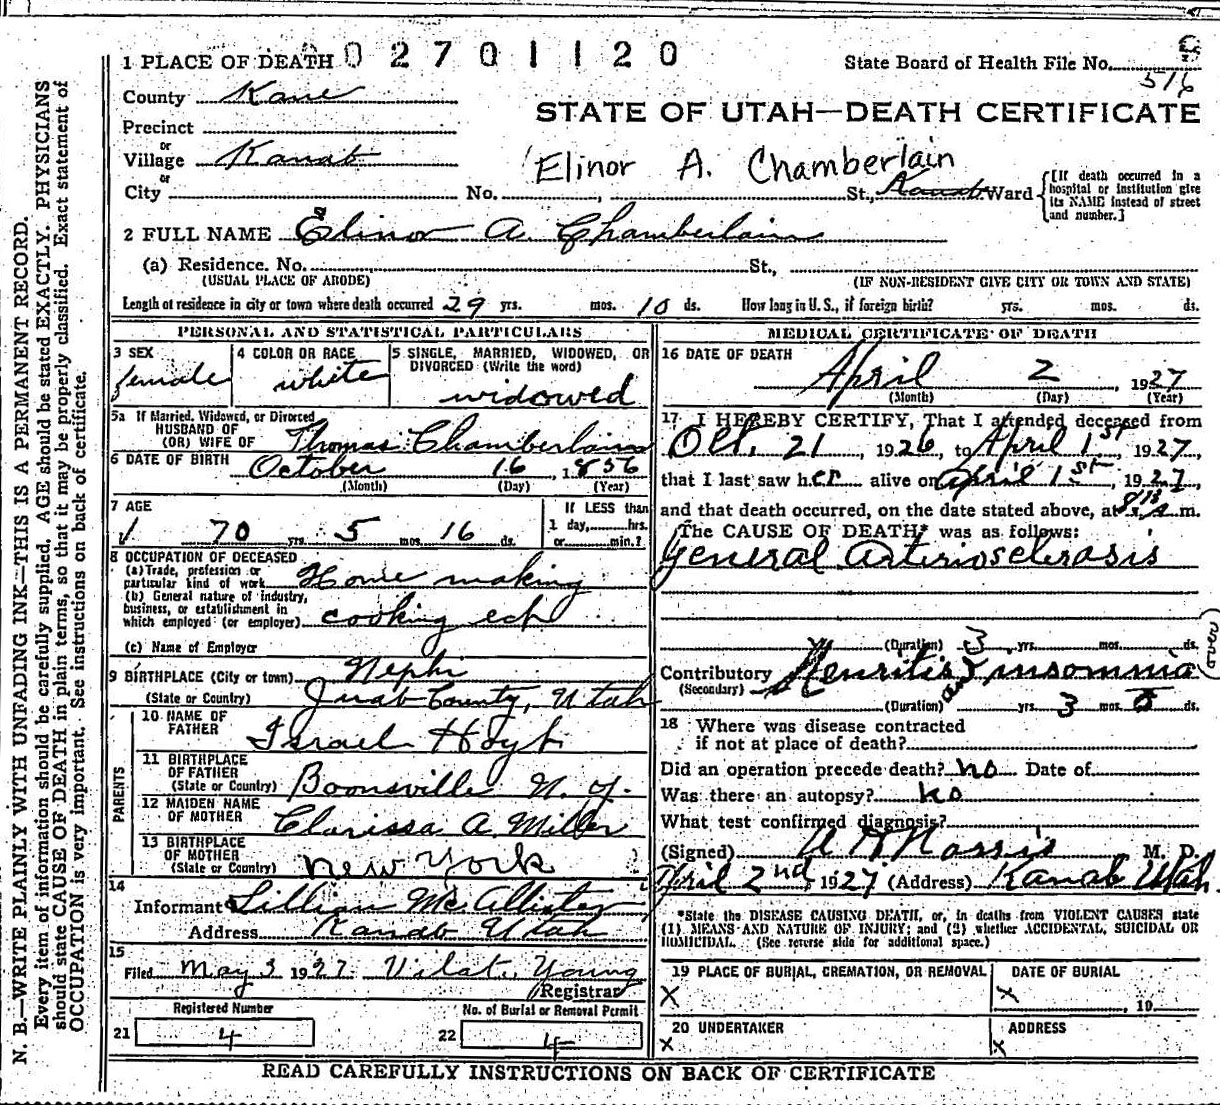 1 PLACE OF DEATH 02701120
State Board of Health File No. 516
County Kane
STATE OF UTAH—DEATH CERTIFICATE
Precinct
or
Village Kanab
Elinor A. Chamberlain
or
City No. , St., Kanab Ward
[If death occurred in a hospital or institution give its NAME instead of street and number.]
2 FULL NAME Elinor A. Chamberlain
(a) Residence. No. St.,
(USUAL PLACE OF ABODE) (IF NON-RESIDENT GIVE CITY OR TOWN AND STATE)
Length of residence in city or town where death occurred 29 yrs. mos. 10 ds. How long in U. S., if foreign birth? yrs. mos. ds.
PERSONAL AND STATISTICAL PARTICULARS
3 SEX female
4 COLOR OR RACE white
5 SINGLE, MARRIED, WIDOWED, OR DIVORCED (Write the word)
widowed
5a If Married, Widowed, or Divorced
HUSBAND OF
(OR) WIFE OF Thomas Chamberlain
6 DATE OF BIRTH October 16 1856
(Month) (Day) (Year)
7 AGE
70 yrs. 5 mos. 16 ds.
If LESS than
1 day, hrs.
or min.?
8 OCCUPATION OF DECEASED
(a) Trade, profession or
particular kind of work Home making
(b) General nature of industry,
business, or establishment in
which employed (or employer) cooking ech
(c) Name of Employer
9 BIRTHPLACE (City or town) Nephi
(State or Country) Juab County, Utah
PARENTS
10 NAME OF
FATHER Israel Hoyt
11 BIRTHPLACE
OF FATHER
(State or Country) Boonsville N. Y.
12 MAIDEN NAME
OF MOTHER Clarissa A. Miller
13 BIRTHPLACE
OF MOTHER
(State or Country) New York
14
Informant Lillian McAllister
Address Kanab Utah
15
Filed May 3 1927 Vilat. Young
Registrar
Registered Number
21 4
No. of Burial or Removal Permit
22 4
MEDICAL CERTIFICATE OF DEATH
16 DATE OF DEATH
April 2, 1927
(Month) (Day) (Year)
17 I HEREBY CERTIFY, That I attended deceased from
Oct. 21, 1926, to April 1st, 1927,
that I last saw her alive on April 1st, 1927,
and that death occurred, on the date stated above, at m.
The CAUSE OF DEATH* was as follows:
General Arteriosclerasis
(Duration) 3 yrs. mos. ds.
(over)
Contributory Neuritis and insomnia
(Secondary)
(Duration) yrs. 3 mos. 0 ds.
18 Where was disease contracted
if not at place of death?
Did an operation precede death? no Date of
Was there an autopsy? no
What test confirmed diagnosis?
(Signed) A H Norris M. D.
April 2nd, 1927 (Address) Kanab Utah.
*State the DISEASE CAUSING DEATH, or, in deaths from VIOLENT CAUSES state
(1) MEANS AND NATURE OF INJURY; and (2) whether ACCIDENTAL, SUICIDAL OR
HOMICIDAL. (See reverse side for additional space.)
19 PLACE OF BURIAL, CREMATION, OR REMOVAL
X
DATE OF BURIAL
X , 19
20 UNDERTAKER
X
ADDRESS
X
READ CAREFULLY INSTRUCTIONS ON BACK OF CERTIFICATE
N. B.—WRITE PLAINLY WITH UNFADING INK—THIS IS A PERMANENT RECORD.
Every item of information should be carefully supplied. AGE should be stated EXACTLY. PHYSICIANS
should state CAUSE OF DEATH in plain terms, so that it may be properly classified. Exact statement of
OCCUPATION is very important. See instructions on back of certificate.